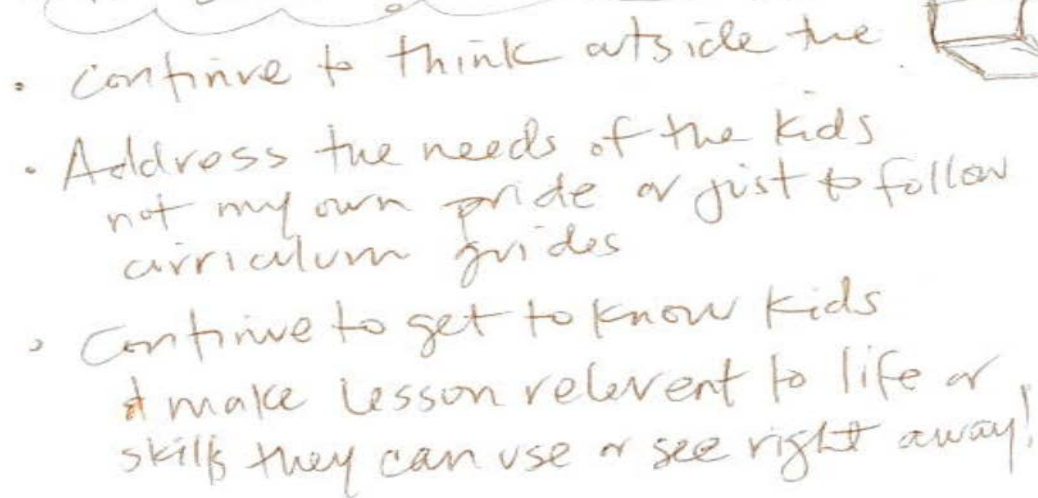 • Continue to think outside the
• Address the needs of the kids
not my own pride or just to follow
curriculum guides
• Continue to get to know kids
& make lesson relevent to life or
skills they can use or see right away!